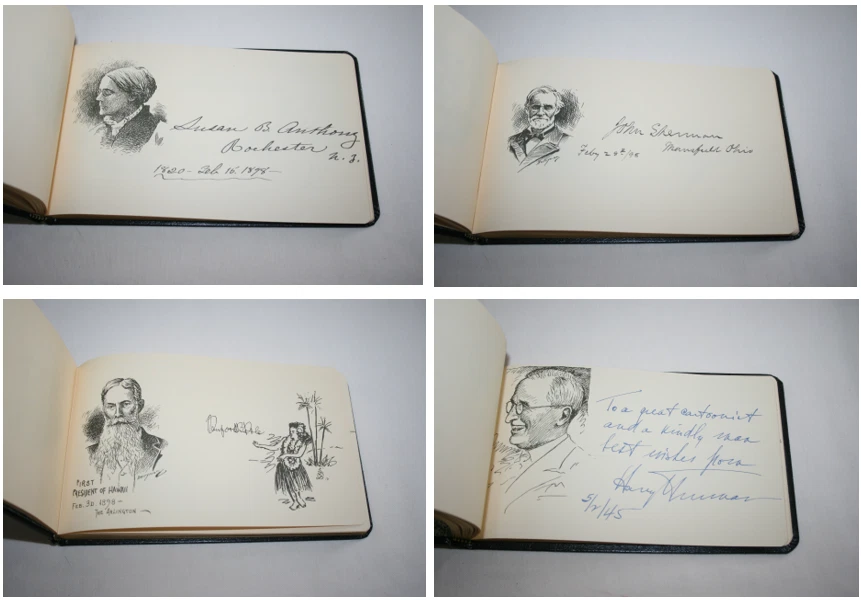 Susan B Anthony
Rochester
N.Y.
1820 - Feb. 16. 1898 -
John Sherman
Mansfield Ohio
Feby 24th/98
FIRST
PRESIDENT OF HAWAII
FEB. 3D. 1898 -
THE ARLINGTON -
To a great cartoonist
and a kindly man
best wishes from
Harry Truman
5/2/45